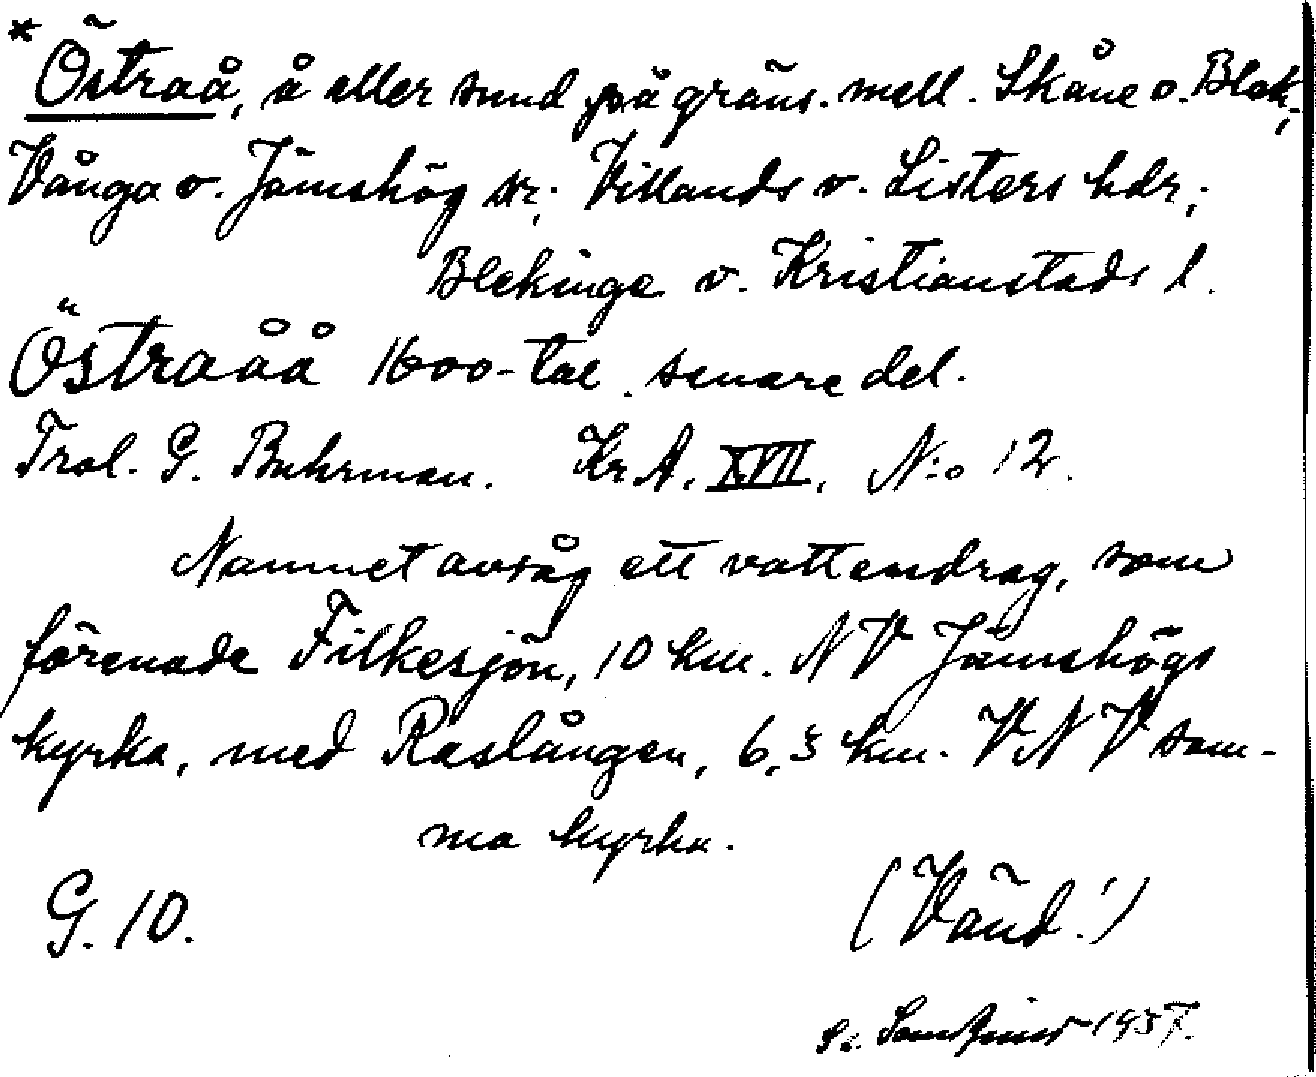 * Östraå, å eller sund på gräns. mell. Skåne o. Blek.,
Vånga o. Jämshög sr; Villands o. Listers hdr;
Blekinge o. Kristianstads l.
Östraåå 1600-tal. senare del.
Trol. G. Buhrman. Kr.A. XVII. N:o 12.
Namnet avsåg ett vattendrag, som
förenade Filkesjön, 10 km. NV Jämshögs
kyrka, med Raslången, 6,3 km. VNV sam-
ma kyrka.
G. 10. (Vänd!)
1937.